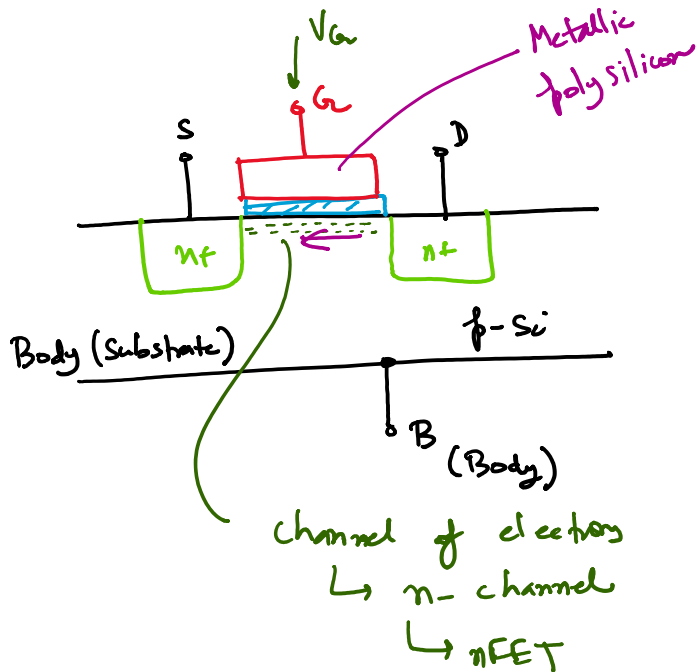 VG
Metallic
polysilicon
G
S
D
n+
n+
Body (Substrate)
p-Si
B
(Body)
channel of electrons
n-channel
nFET